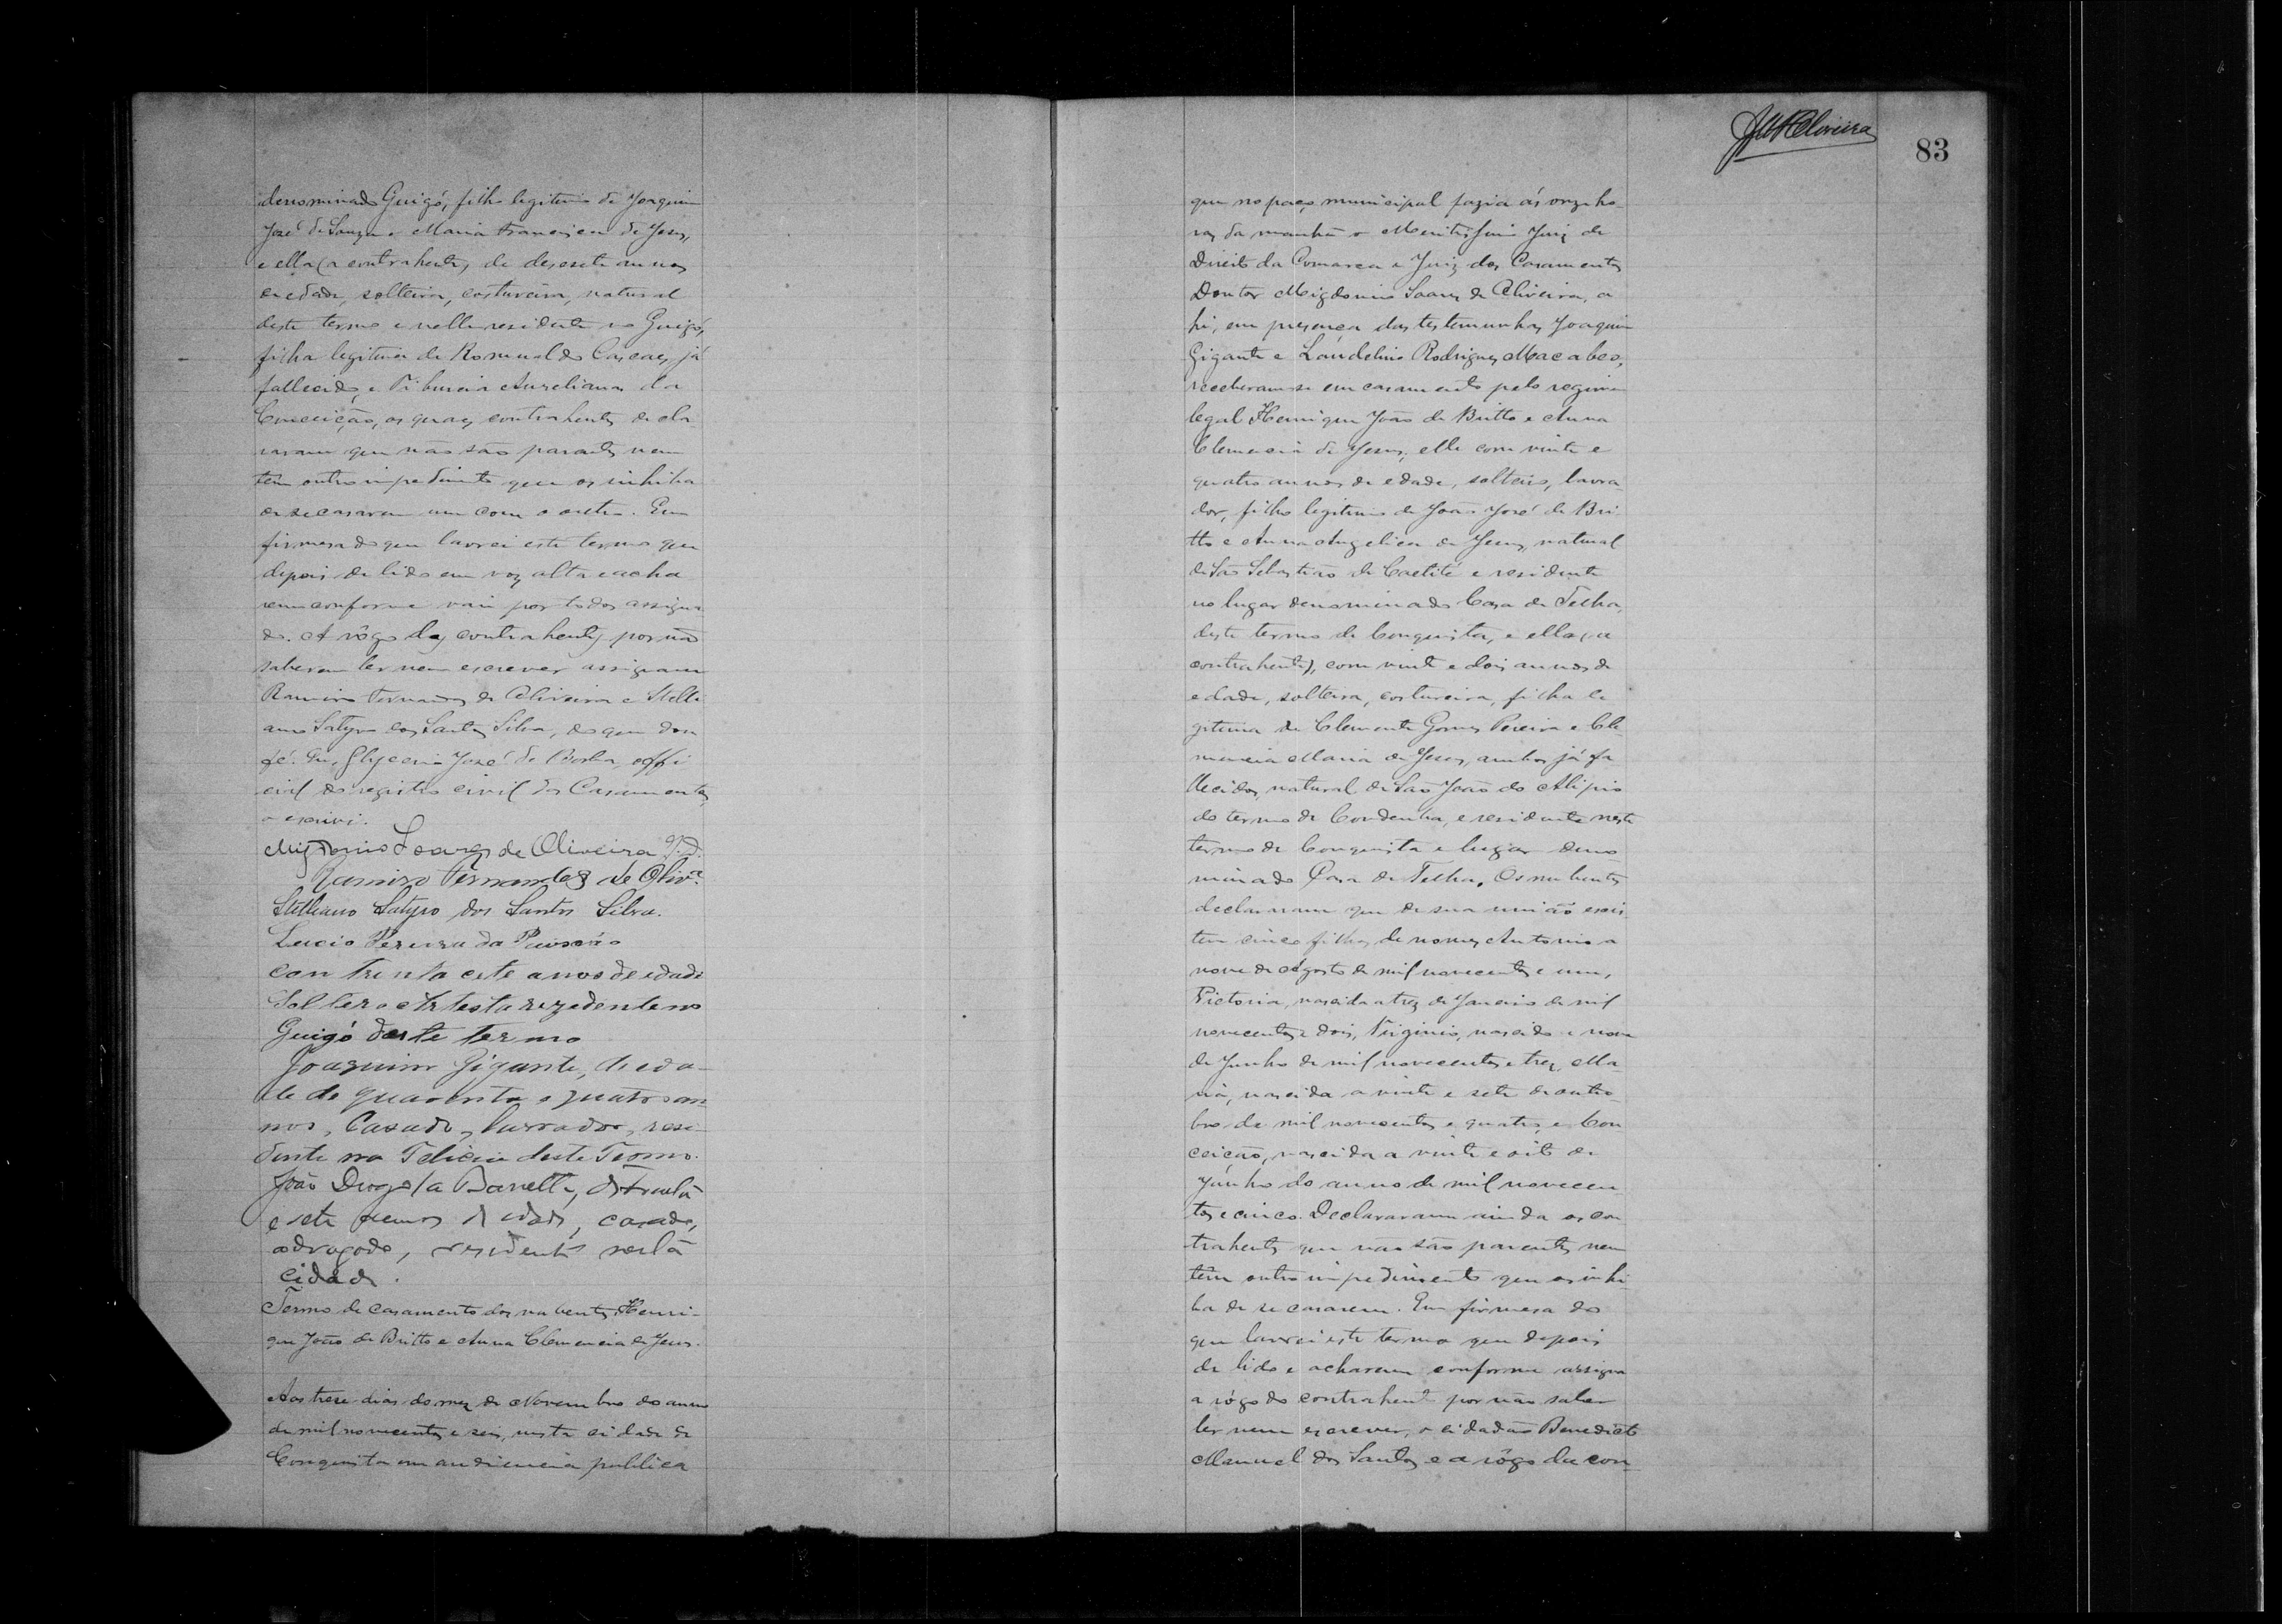 denominado Guigó, filho legitimo de Joaquim
José de Souza e Maria Francisca de Jesus,
e ella (a contrahente) de desesete annos
de edade, solteira, costureira, natural
deste termo e nelle residente no Guigó,
filha legitima de Romualdo Cascaes, já
fallecido, e Tiburcia Aureliana da
Conceição, os quaes contrahentes decla-
raram que não são parentes nem
têm outro impedimento que os inhiba
de se casarem um com o outro. Em
firmesa do que lavrei este termo que
depois de lido em voz alta e acha
rem conforme vai por todos assigna
do. A rôgo dos contrahentes por não
saberem ler nem escrever assignam
Ramiro Fernandes de Oliveira e Stelli
ano Satyro dos Santos Silva, do que dou
fé. Eu, Glycerio José da Rocha, offi
cial do registro civil dos Casamentos
o escrivi.
Migdonio Soares de Oliveira J.D.
Ramiro Fernandes de Olivª.
Stelliano Satyro dos Santos Silva.
Lucio Pereira da
con trinta cete anos de idade
Soltero Artista rezedente no
Guigó deste termo
Joaquim Gigante, de eda-
de de quarenta e quatro an
nos, Casado, lavrador, resi-
dente na deste Termo.
João Diogo Sá Barretto, de trinta
e sete annos de idade, casado,
advogado, residente nesta
cidade.
Termo de casamento dos nubentes Henri-
que João de Britto e Anna Clemencia de Jesus.
Aos trese dias do mez de Novembro do anno
de mil novecentos e seis, nesta cidade de
Conquista em audiencia publica
JMSOliveira
83
que no paço municipal fazia ás onze ho-
ras da manhã o Meritissimo Juiz de
Direito da Comarca e Juiz dos Casamentos
Doutor Migdonio Soares de Oliveira, a
hi, em presença das testemunhas Joaquim
Gigante e Láudelino Rodrigues Macabeo,
receberam-se em casamento pelo regimen
legal Henrique João de Britto e Anna
Clemencia de Jesus, elle com vinte e
quatro annos de edade, solteiro, lavra-
dor, filho legitimo de João José de Bri
tto e Anna Angelica de Jesus, natural
de São Sebastião de Caetité e residente
no lugar denominado Casa de Telha,
deste termo de Conquista, e ella (a
contrahente), com vinte e dois annos de
edade, solteira, costureira, filha le
gitima de Clemente Gomes Pereira e Cle-
mencia Maria de Jesus, ambos já fa
llecidos, natural de São João do Alipio
do termo de Condeuba, e residente neste
termo de Conquista e lugar deno-
minado Casa de Telha. Os nubentes
declararam que de sua união exis
tem cinco filhos de nomes Antonio a
nove de Agosto de mil novecentos e um,
Victoria, nascida a trez de Janeiro de mil
novecentos e dois, Virginio, nascido a nove
de Junho de mil novecentos e trez, Ma-
ria, nascida a vinte e sete de outu-
bro de mil novecentos e quatro, e Con
ceição, nascida a vinte e oito de
Junho do anno de mil novecen-
tos e cinco. Declararam ainda os con
trahentes que não são parentes nem
têm outro impedimento que os inhi-
ba de se casarem. Em firmesa do
que lavrei este termo que depois
de lido e acharem conforme assigna
a rôgo do contrahente por não saber
ler nem escrever, o cidadão Benedicto
Manuel dos Santos e a rôgo da con-